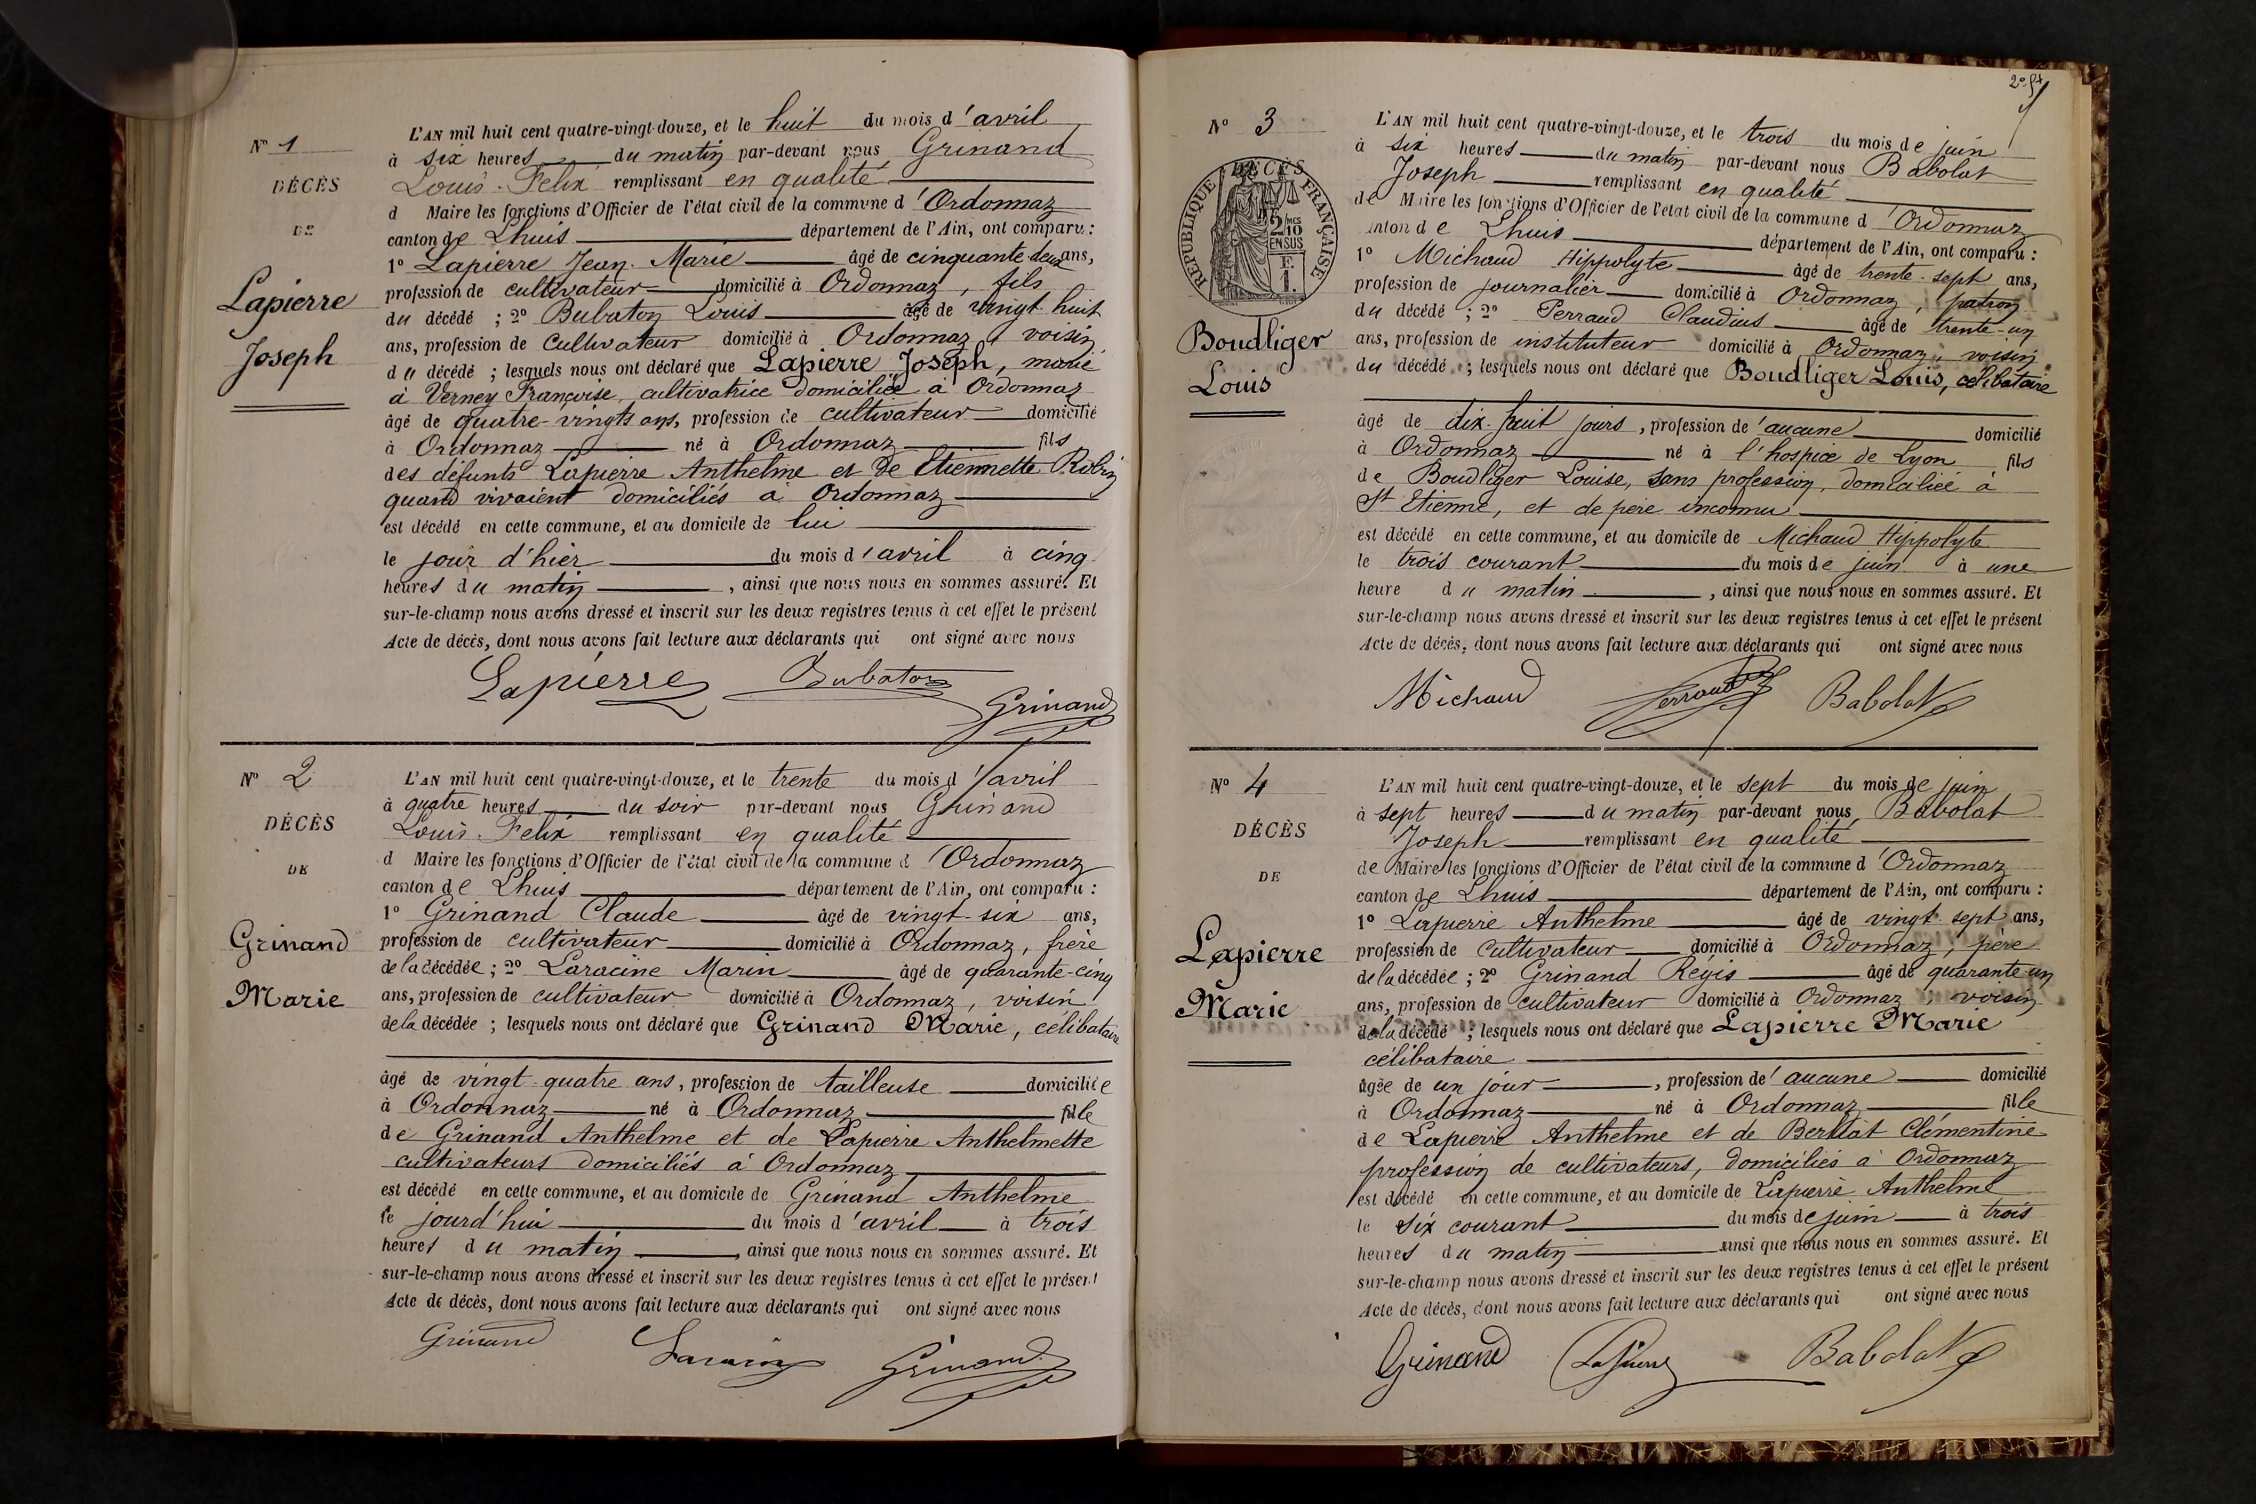 Nº 1
DÉCÈS
DE
Lapierre
Joseph
L'AN mil huit cent quatre-vingt-douze, et le huit du mois d'avril
à six heures du matin par-devant nous Grinand
Louis-Felix remplissant en qualité
d Maire les fonctions d'Officier de l'état civil de la commune d'Ordonnaz
canton de Lhuis département de l'Ain, ont comparu :
1º Lapierre Jean-Marie âgé de cinquante-deux ans,
profession de cultivateur domicilié à Ordonnaz, fils
du décédé ; 2º Bubaton Louis âgé de vingt-huit
ans, profession de cultivateur domicilié à Ordonnaz, voisin
du décédé ; lesquels nous ont déclaré que Lapierre Joseph, marié
à Verney Françoise, cultivatrice domiciliée à Ordonnaz
âgé de quatre-vingts ans, profession de cultivateur domicilié
à Ordonnaz né à Ordonnaz fils
des défunts Lapierre Anthelme et de Etiennette Robin
quand vivaient domiciliés à Ordonnaz
est décédé en cette commune, et au domicile de lui
le jour d'hier du mois d'avril à cinq
heures du matin, ainsi que nous nous en sommes assuré. Et
sur-le-champ nous avons dressé et inscrit sur les deux registres tenus à cet effet le présent
Acte de décès, dont nous avons fait lecture aux déclarants qui ont signé avec nous
Lapierre Bubaton Grinand
Nº 2
DÉCÈS
DE
Grinand
Marie
L'AN mil huit cent quatre-vingt-douze, et le trente du mois d'avril
à quatre heures du soir par-devant nous Grinand
Louis-Felix remplissant en qualité
d Maire les fonctions d'Officier de l'état civil de la commune d'Ordonnaz
canton de Lhuis département de l'Ain, ont comparu :
1º Grinand Claude âgé de vingt-six ans,
profession de cultivateur domicilié à Ordonnaz, frère
de la décédée ; 2º Laracine Marin âgé de quarante-cinq
ans, profession de cultivateur domicilié à Ordonnaz, voisin
de la décédée ; lesquels nous ont déclaré que Grinand Marie, célibataire
âgé de vingt-quatre ans, profession de tailleuse domiciliée
à Ordonnaz né à Ordonnaz fille
de Grinand Anthelme et de Lapierre Anthelmette
cultivateurs domiciliés à Ordonnaz
est décédé en cette commune, et au domicile de Grinand Anthelme
le jourd'hui du mois d'avril à trois
heures du matin, ainsi que nous nous en sommes assuré. Et
sur-le-champ nous avons dressé et inscrit sur les deux registres tenus à cet effet le présent
Acte de décès, dont nous avons fait lecture aux déclarants qui ont signé avec nous
Grinand Laracine Grinand
Nº 3
RÉPUBLIQUE FRANÇAISE
DÉCÈS
2/10 MES
EN SUS
F.
1.
Boudliger
Louis
L'AN mil huit cent quatre-vingt-douze, et le trois du mois de juin
à six heures du matin par-devant nous Babolat
Joseph remplissant en qualité
de Maire les fonctions d'Officier de l'état civil de la commune d'Ordonnaz
canton de Lhuis département de l'Ain, ont comparu :
1º Michaud Hippolyte âgé de trente-sept ans,
profession de journalier domicilié à Ordonnaz, patron
du décédé ; 2º Perraud Claudius âgé de trente-un
ans, profession de instituteur domicilié à Ordonnaz, voisin
du décédé ; lesquels nous ont déclaré que Boudliger Louis, célibataire
âgé de dix-huit jours, profession de'aucune domicilié
à Ordonnaz né à l'hospice de Lyon fils
de Boudliger Louise, sans profession, domiciliée à
St Etienne, et de père inconnu
est décédé en cette commune, et au domicile de Michaud Hippolyte
le trois courant du mois de juin à une
heure du matin, ainsi que nous nous en sommes assuré. Et
sur-le-champ nous avons dressé et inscrit sur les deux registres tenus à cet effet le présent
Acte de décès, dont nous avons fait lecture aux déclarants qui ont signé avec nous
Michaud Perraud Babolat
Nº 4
DÉCÈS
DE
Lapierre
Marie
L'AN mil huit cent quatre-vingt-douze, et le sept du mois de juin
à sept heures du matin par-devant nous Babolat
Joseph remplissant en qualité
de Maire les fonctions d'Officier de l'état civil de la commune d'Ordonnaz
canton de Lhuis département de l'Ain, ont comparu :
1º Lapierre Anthelme âgé de vingt-sept ans,
profession de cultivateur domicilié à Ordonnaz, père
de la décédée ; 2º Grinand Régis âgé de quarante-un
ans, profession de cultivateur domicilié à Ordonnaz, voisin
de la décédé ; lesquels nous ont déclaré que Lapierre Marie
célibataire
âgée de un jour, profession de'aucune domicilié
à Ordonnaz né à Ordonnaz fille
de Lapierre Anthelme et de Berlliat Clémentine
profession de cultivateurs, domiciliés à Ordonnaz
est décédé en cette commune, et au domicile de Lapierre Anthelme
le six courant du mois de juin à trois
heures du matin ainsi que nous nous en sommes assuré. Et
sur-le-champ nous avons dressé et inscrit sur les deux registres tenus à cet effet le présent
Acte de décès, dont nous avons fait lecture aux déclarants qui ont signé avec nous
Grinand Lapierre Babolat